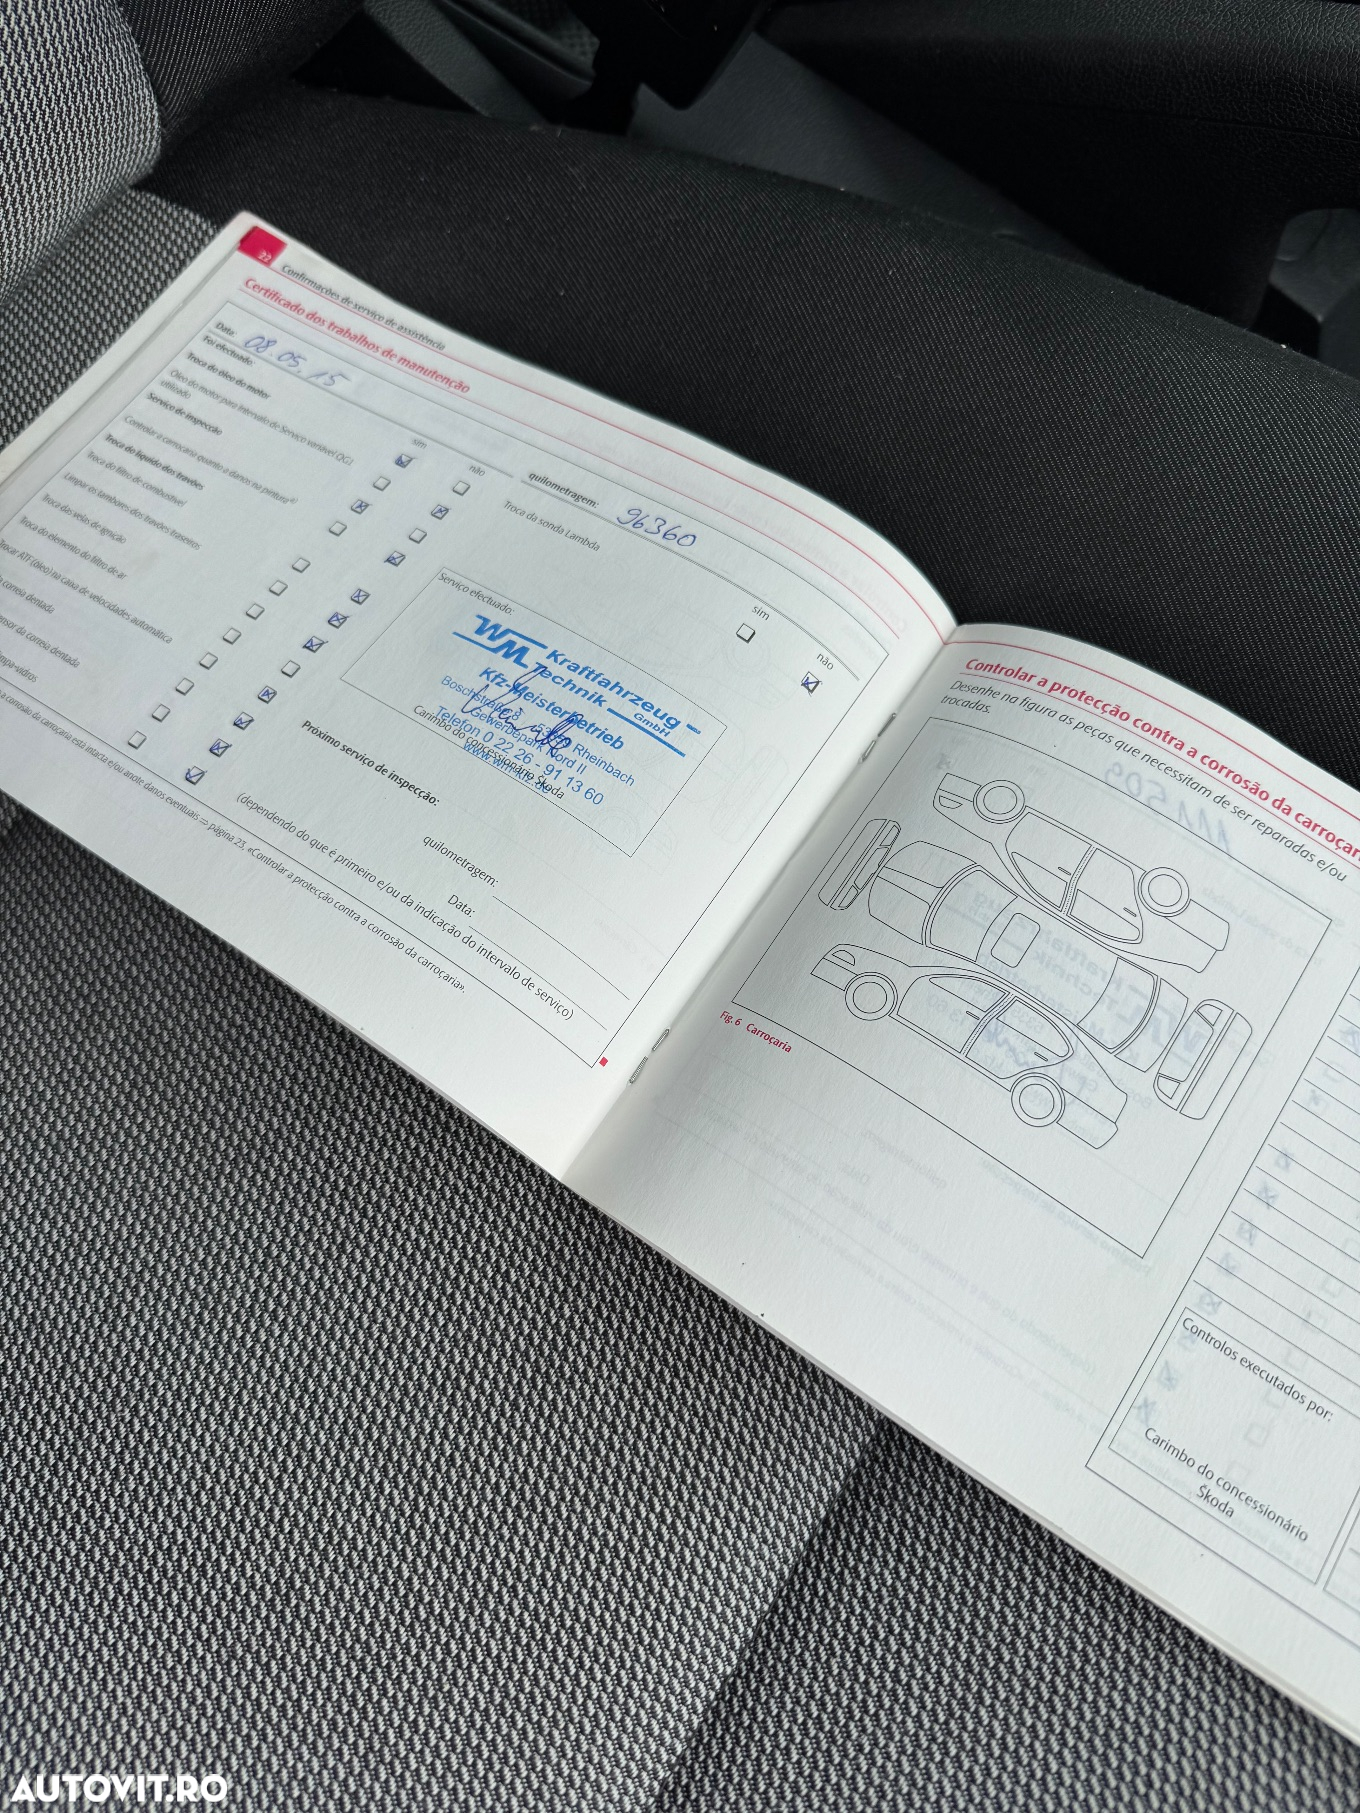 22
Confirmações de serviço de assistência
Certificado dos trabalhos de manutenção
Data: 08.05.15
quilometragem: 96360
Foi efectuado:
sim
não
Troca do óleo do motor
Óleo do motor para Intervalo de Serviço variável (QG)
utilizado
Serviço de inspecção
Controlar a carroçaria quanto a danos na pintura
Troca do líquido dos travões
Troca do filtro de combustível
Limpar os tambores dos travões traseiros
Troca das velas de ignição
Troca do elemento do filtro de ar
Trocar ATF (óleo) na caixa de velocidades automática
correia dentada
da correia dentada
Troca da sonda Lambda
sim
não
Serviço efectuado:
WM Kraftfahrzeug
Technik GmbH
Kfz-Meisterbetrieb
Rheinbach
Gewerbepark Nord II
Telefon 0 22 26 - 91 13 60
Carimbo do concessionário Škoda
Próximo serviço de inspecção:
quilometragem:
Data:
(dependendo do que é primeiro e/ou da indicação do intervalo de serviço)
a corrosão da carroçaria está intacta e/ou anote danos eventuais ⇒ página 23, «Controlar a protecção contra a corrosão da carroçaria».
Controlar a protecção contra a corrosão da carroçar
Desenhe na figura as peças que necessitam de ser reparadas e/ou
trocadas.
Fig. 6 Carroçaria
Controlos executados por:
Carimbo do concessionário
Škoda
AUTOVIT.RO